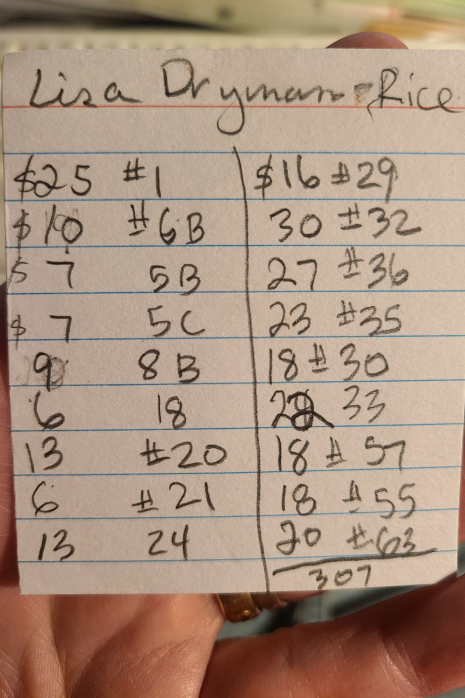 Lisa Dryman-Rice
$25 #1
$10 #6B
$7 5B
$7 5C
9 8B
6 18
13 #20
6 #21
13 24
$16 #29
30 #32
27 #36
23 #35
18 #30
33
18 # 57
18 #55
20 #63
307